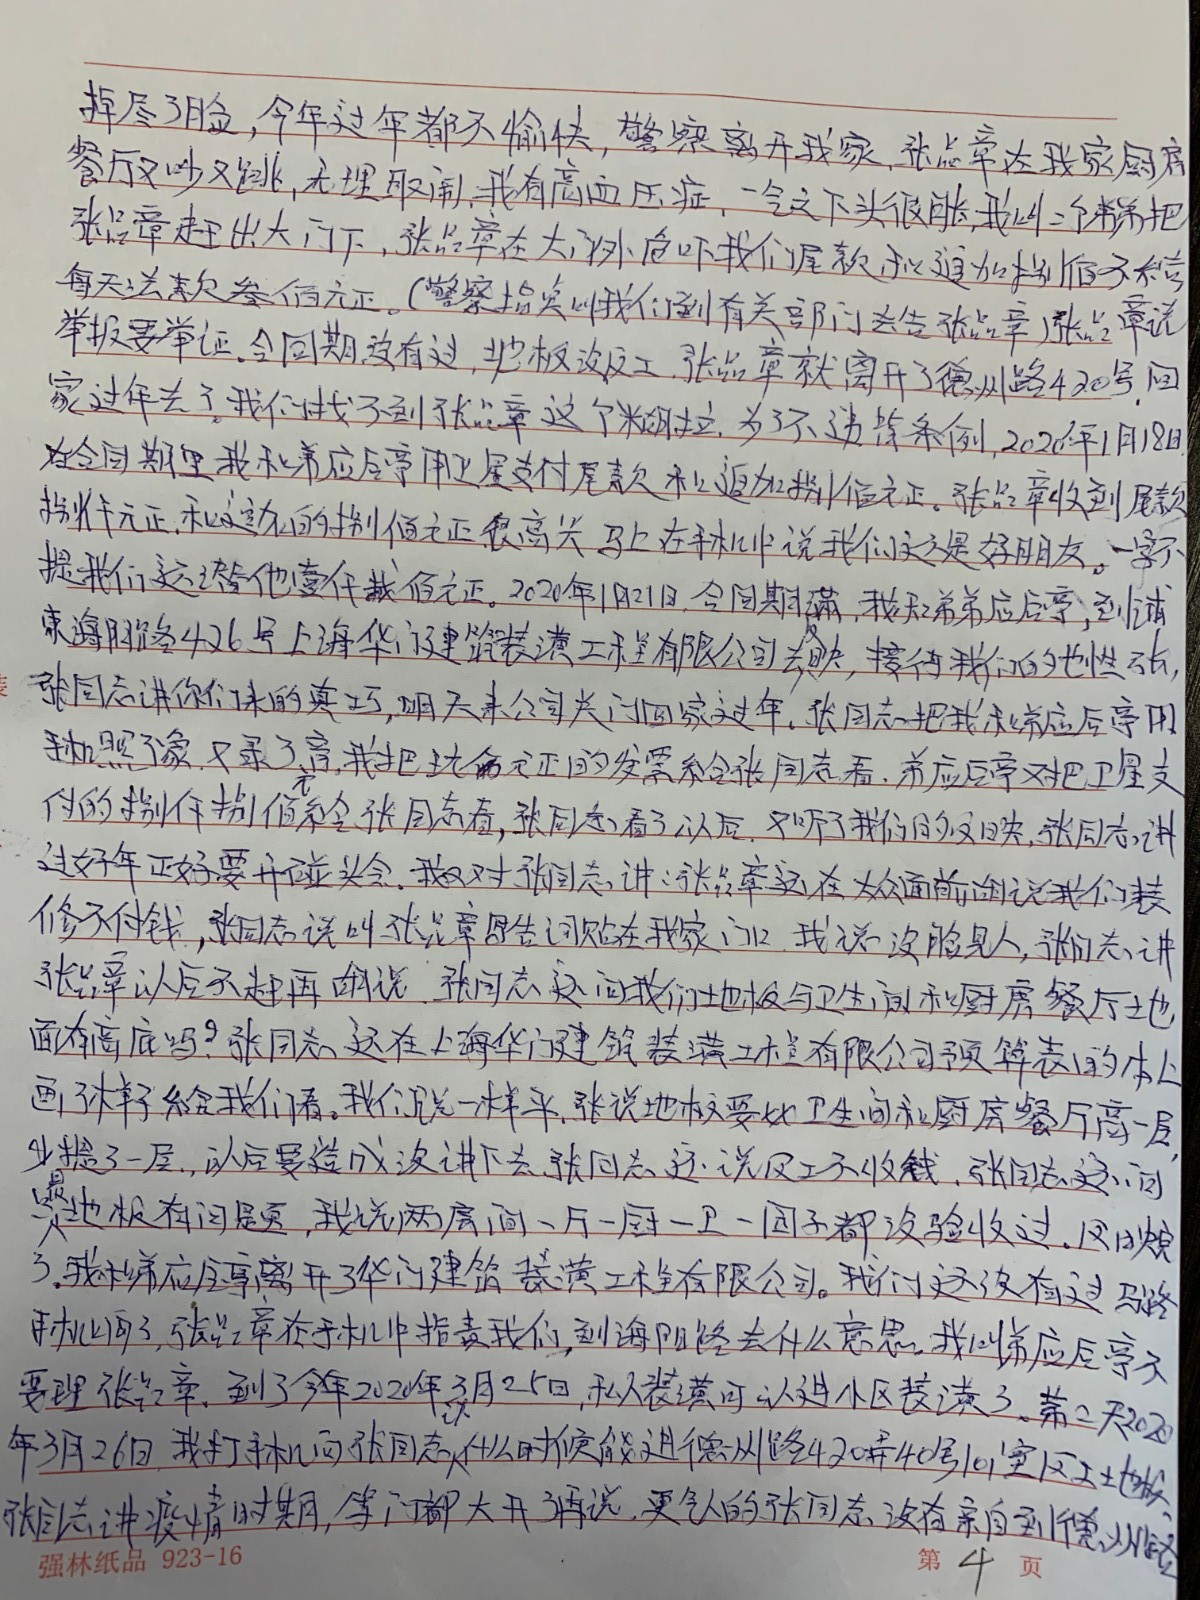 掉尽了脸，今年过年都不愉快，警察离开我家，张品章在我家厨房
餐厅又吵又跳，无理取闹，我有高血压症，一令之下头很胀，我叫二个弟弟把
张品章赶出大门下，张品章在大门外危吓我们尾款和追加捌佰不给
每天法款叁佰元正。（警察指责叫我们到有关部门去告张品章）张品章说
举报要举证。合同期没有过，地板没反工，张品章就离开了德州路420号，回
家过年去了。我们找不到张品章这个，为了不违背条例，2020年1月18日
在合同期里我和弟应后亭用卫星支付尾款和追加捌佰元正。张品章收到尾款
捌仟元正，和追加的捌佰元正很高兴马上在手机中说我们这方是好朋友。一字不
提我们还替他壹仟贰佰元正。2020年1月21日，合同期满，我和弟弟应后亭，到浦
东海阳路426号上海华门建筑装潢工程有限公司去反映，接待我们的他性张，
张同志讲你们来的真巧，明天来公司关门回家过年。张同志把我和弟应后亭用
手机照了象，又录了音，我把玖佰元正的发票给张同志看，弟应后亭又把卫星支
付的捌仟捌佰元给张同志看，张同志看了以后，又听了我们的反映，张同志讲
过好年正好要开碰头会。我又对张同志讲：张品章还在大众面前胡说我们装
修不付钱，张同志说叫张品章写告词贴在我家门口，我说没脸见人，张同志讲
张品章以后不赶再胡说，张同志还问我们地板与卫生间和厨房餐厅地
面有高底吗？张同志还在上海华门建筑装潢工程有限公司预算表的本上
画了样子给我们看。我们说一样平，张说地板要比卫生间和厨房餐厅高一层，
少搭了一层，以后要造成没讲下去，张同志还说反工不收钱，张同志还问
是地板有问题，我说两房间一厅一厨一卫一因子都没验收过。
了。我和弟应后亭离开了华门建筑装潢工程有限公司。我们还没有过马路
手机响了，张品章在手机中指责我们，到海阳路去什么意思。我叫弟应后亭不
要理张品章。到了今年2020年3月25日，私人装潢可以进小区装潢了。第二天2020
年3月26日，我打手机问张同志，什么时候能进德州路420弄40号101室反工地板，
张同志讲疫情时期，等门都大开了再说。更气人的张同志没有亲自到德州路
强林纸品 923-16
第 4 页